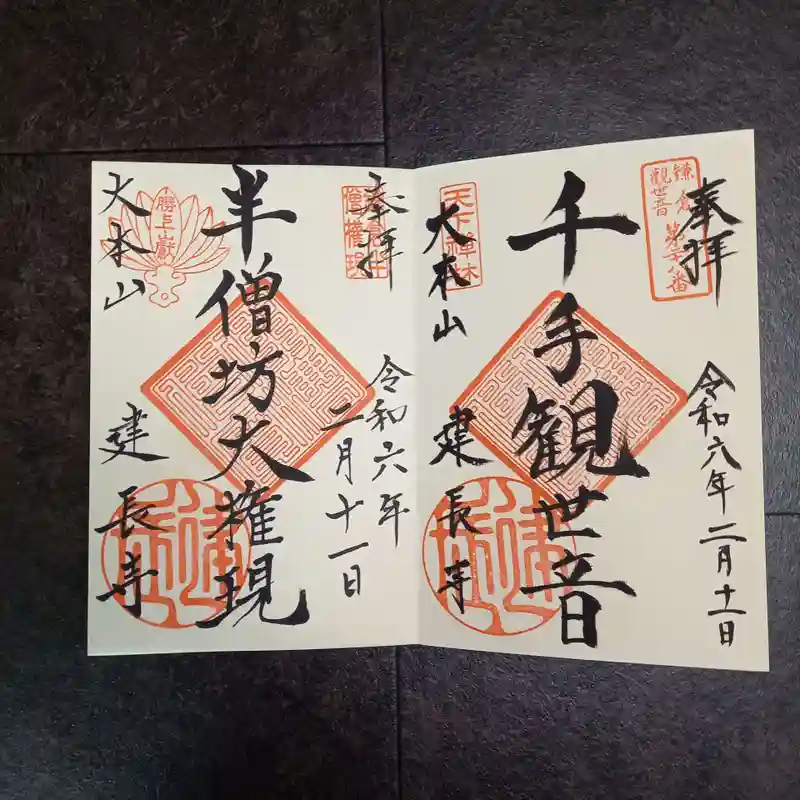 奉拝
鎌倉
観世音
第二十八番
令和六年二月十一日
千手観世音
天下禅林
大本山
建長寺
奉拝
令和六年
二月十一日
半僧坊大権現
勝上嶽
大本山
建長寺